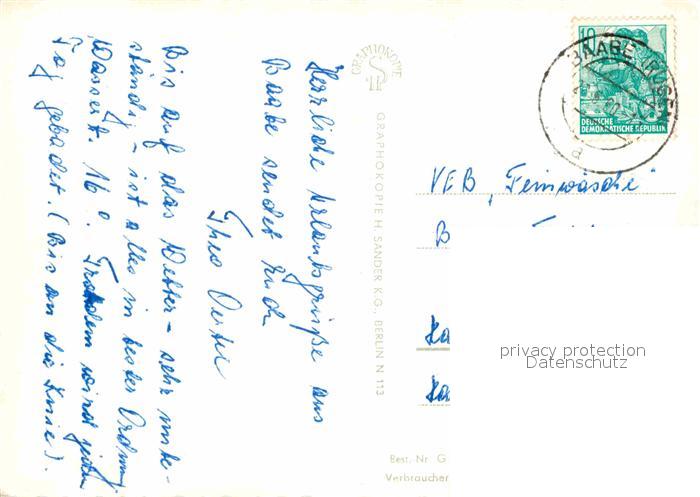 Herzliche Urlaubsgrüße aus
Baabe sendet Euch
Theo
Bis auf das Wetter – sehr unbe-
ständig – ist alles in bester Ordnung.
Wassert. 16°. Trotzdem wird jeden
Tag gebadet. (Bis an die Knie).
GRAPHOKOPIE
GRAPHOKOPIE H. SANDER K.G., BERLIN N 113
Best. Nr. G
Verbraucher
10
DEUTSCHE
DEMOKRATISCHE REPUBLIK
BAABE (RÜGEN)
a
VEB „Feinwäsche"
B
Ka
Ka
privacy protection
Datenschutz